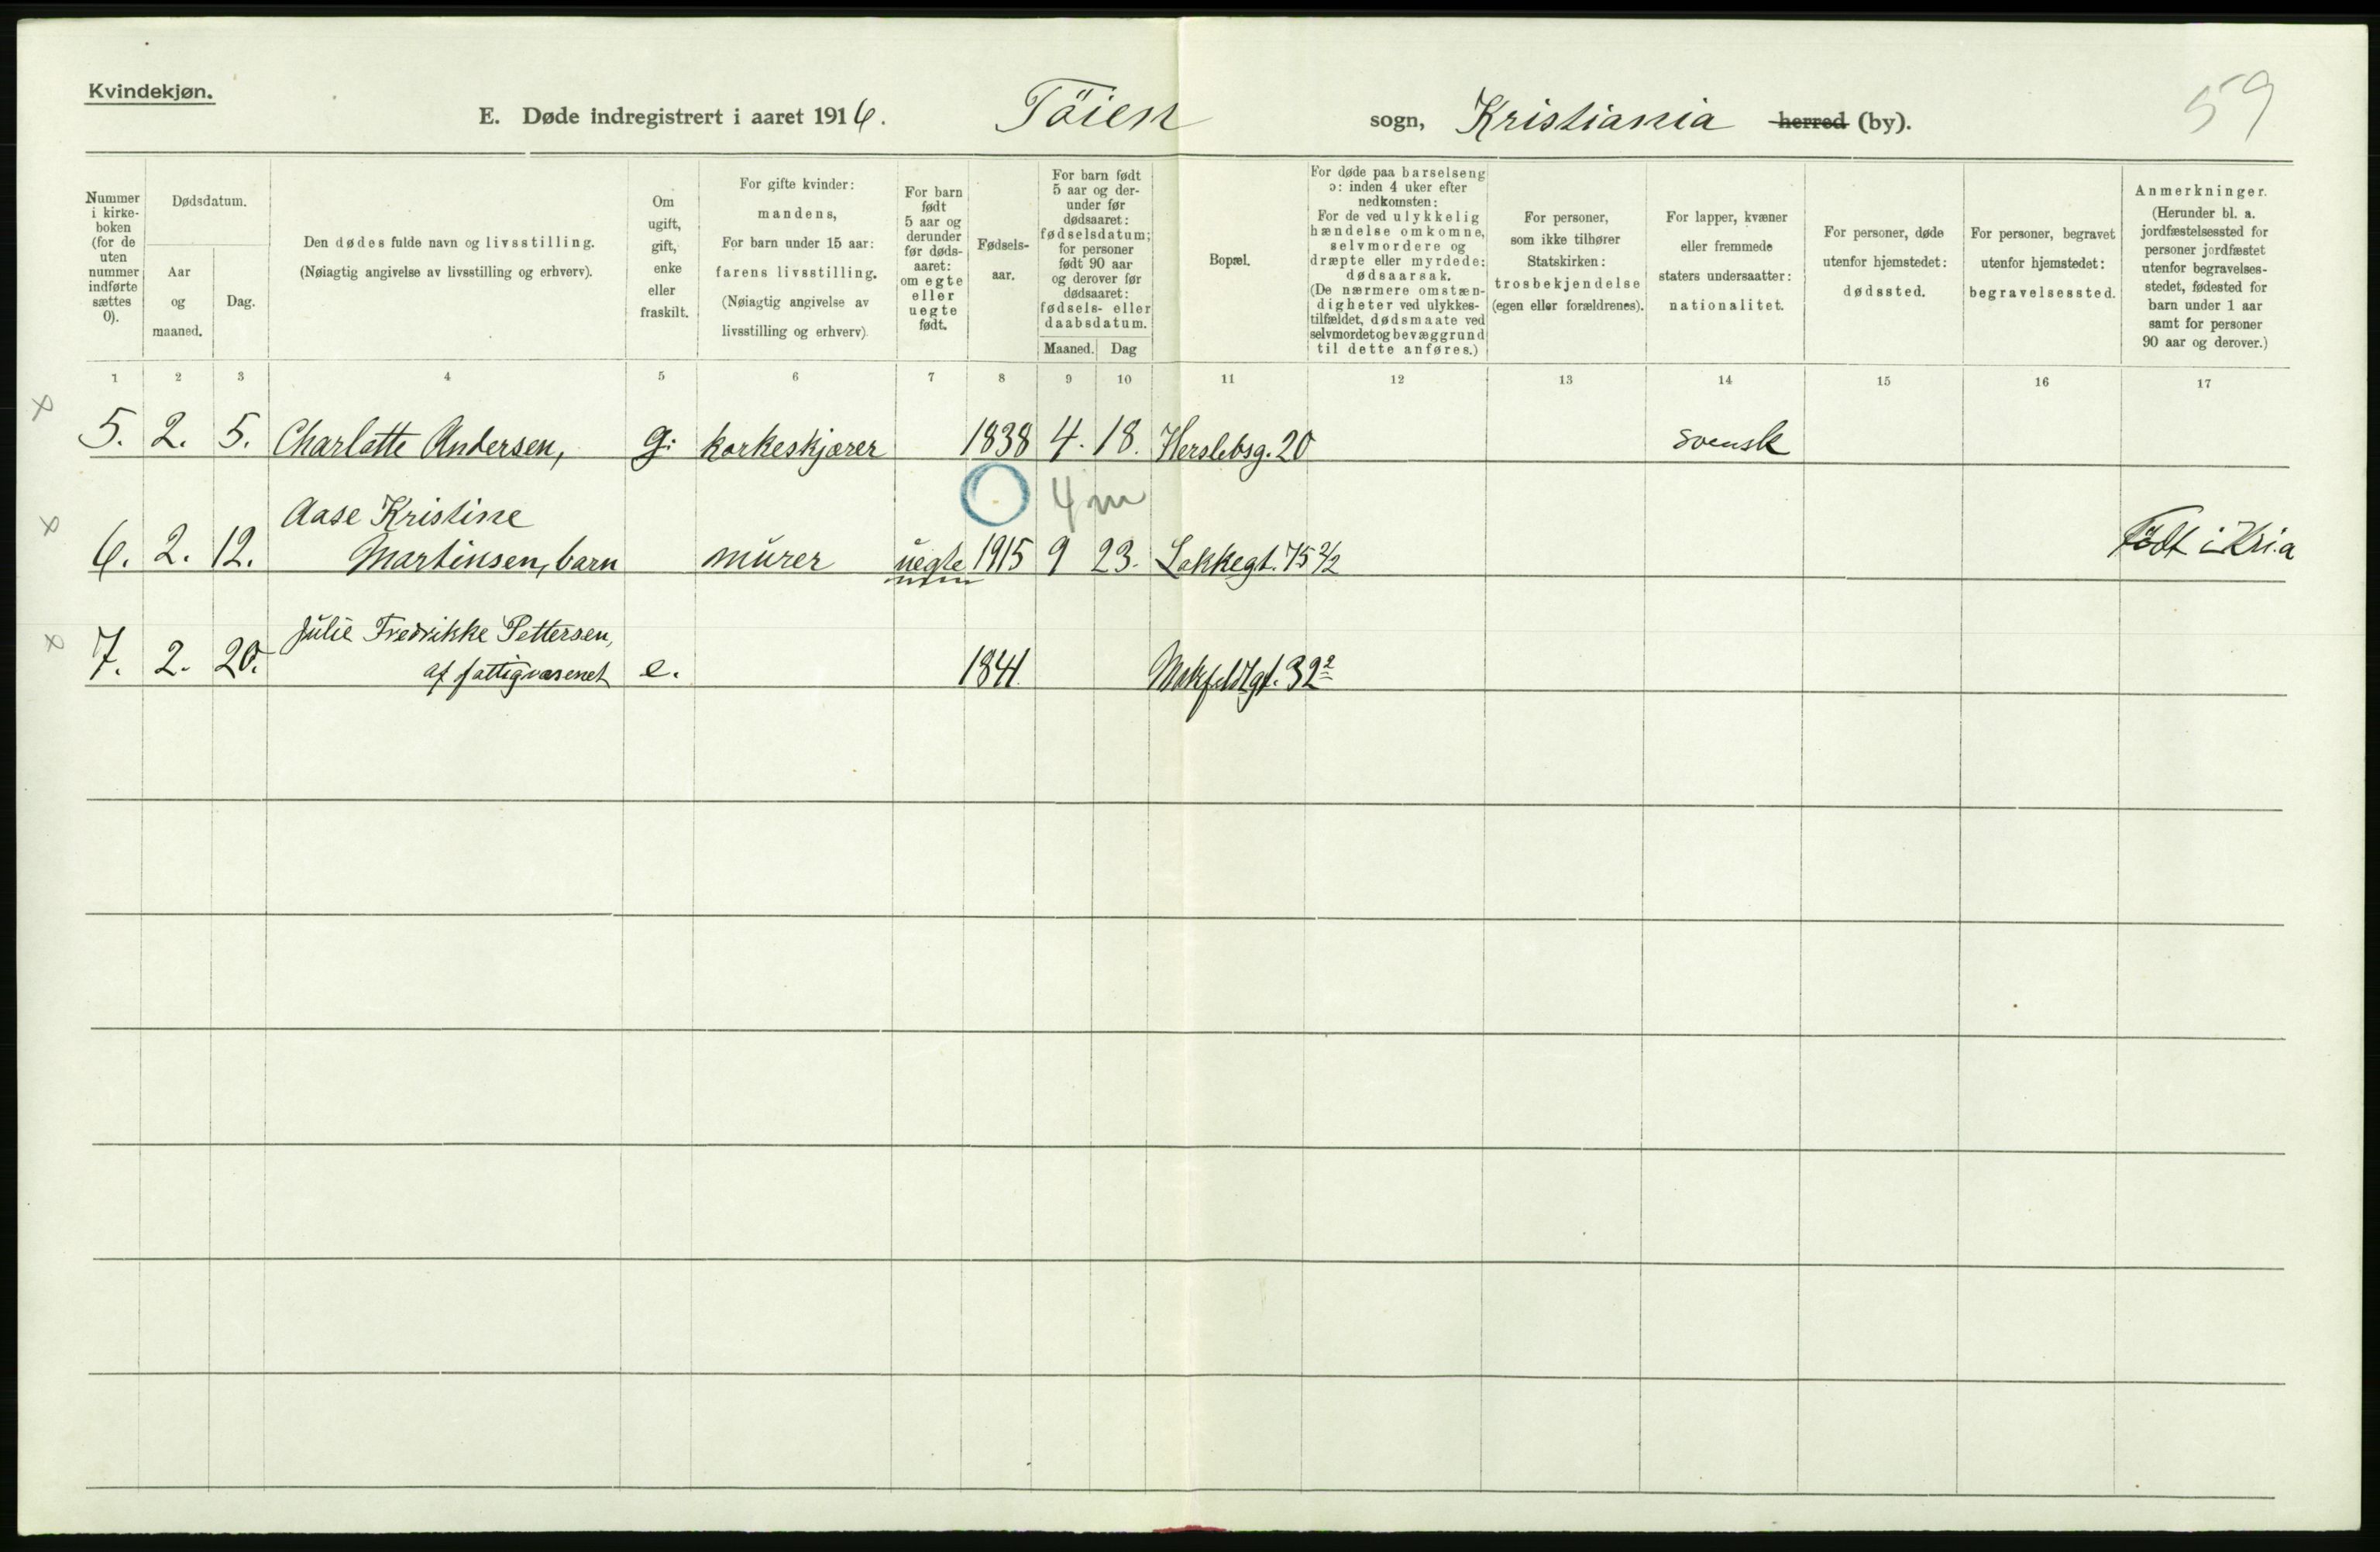 Kvindekjøn.
E. Døde indregistrert i aaret 1916. Töien sogn, Kristiania herred (by).
59
Nummer i kirkeboken (for de uten nummer indførte sættes 0).
Dødsdatum.
Aar og maaned.
Dag.
Den dødes fulde navn og livsstilling.
(Nøiagtig angivelse av livsstilling og erhverv).
Om ugift, gift, enke eller fraskilt.
For gifte kvinder: mandens,
For barn under 15 aar: farens livsstilling.
(Nøiagtig angivelse av livsstilling og erhverv).
For barn født 5 aar og derunder før dødsaaret: om egte eller uegte født.
Fødselsaar.
For barn født 5 aar og derunder før dødsaaret: fødselsdatum; for personer født 90 aar og derover før dødsaaret: fødsels- eller daabsdatum.
Maaned. Dag
Bopæl.
For døde paa barselseng ɔ: inden 4 uker efter nedkomsten:
For de ved ulykkelig hændelse omkomne, selvmordere og dræpte eller myrdede: dødsaarsak.
(De nærmere omstændigheter ved ulykkestilfældet, dødsmaate ved selvmordet og bevæggrund til dette anføres.)
For personer, som ikke tilhører Statskirken: trosbekjendelse (egen eller forældrenes).
For lapper, kvæner eller fremmede staters undersaatter: nationalitet.
For personer, døde utenfor hjemstedet: dødssted.
For personer, begravet utenfor hjemstedet: begravelsessted.
Anmerkninger.
(Herunder bl. a. jordfæstelsessted for personer jordfæstet utenfor begravelsesstedet, fødested for barn under 1 aar samt for personer 90 aar og derover.)
1 2 3 4 5 6 7 8 9 10 11 12 13 14 15 16 17
x
5. 2. 5. Charlotte Andersen, g. korkeskjærer 1838 4. 18. Herslebsg. 20 svensk
4 m
x
Aase Kristine
6. 2. 12. Martinsen, barn murer uegte 1915 9 23. Lakkegt. 75 2/2 Født i Kri.a
x
Julie Fredrikke Pettersen,
7. 2. 20. af fattigvæsenet e. 1841. 32 2